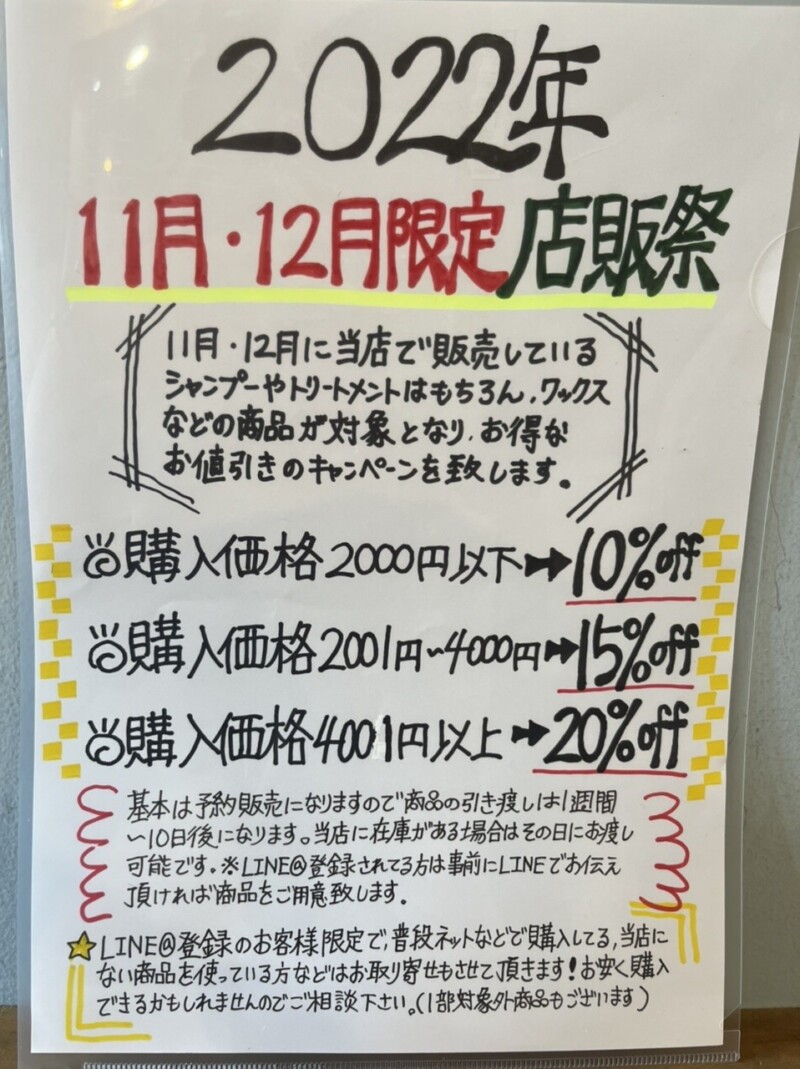 2022年
11月・12月限定店販祭
11月・12月に当店で販売している
シャンプーやトリートメントはもちろん、ワックス
などの商品が対象となり、お得な
お値引きのキャンペーンを致します。
購入価格2000円以下➡10%off
購入価格2001円~4000円➡15%off
購入価格4001円以上➡20%off
基本は予約販売になりますので商品の引き渡しは1週間
~10日後になります。当店に在庫がある場合はその日にお渡し
可能です。※LINE@登録されてる方は事前にLINEでお伝え
頂ければ商品をご用意致します。
★LINE@登録のお客様限定で、普段ネットなどで購入してる、当店に
ない商品を使っている方などはお取り寄せもさせて頂きます!お安く購入
できるかもしれませんのでご相談下さい。(1部対象外商品もございます)